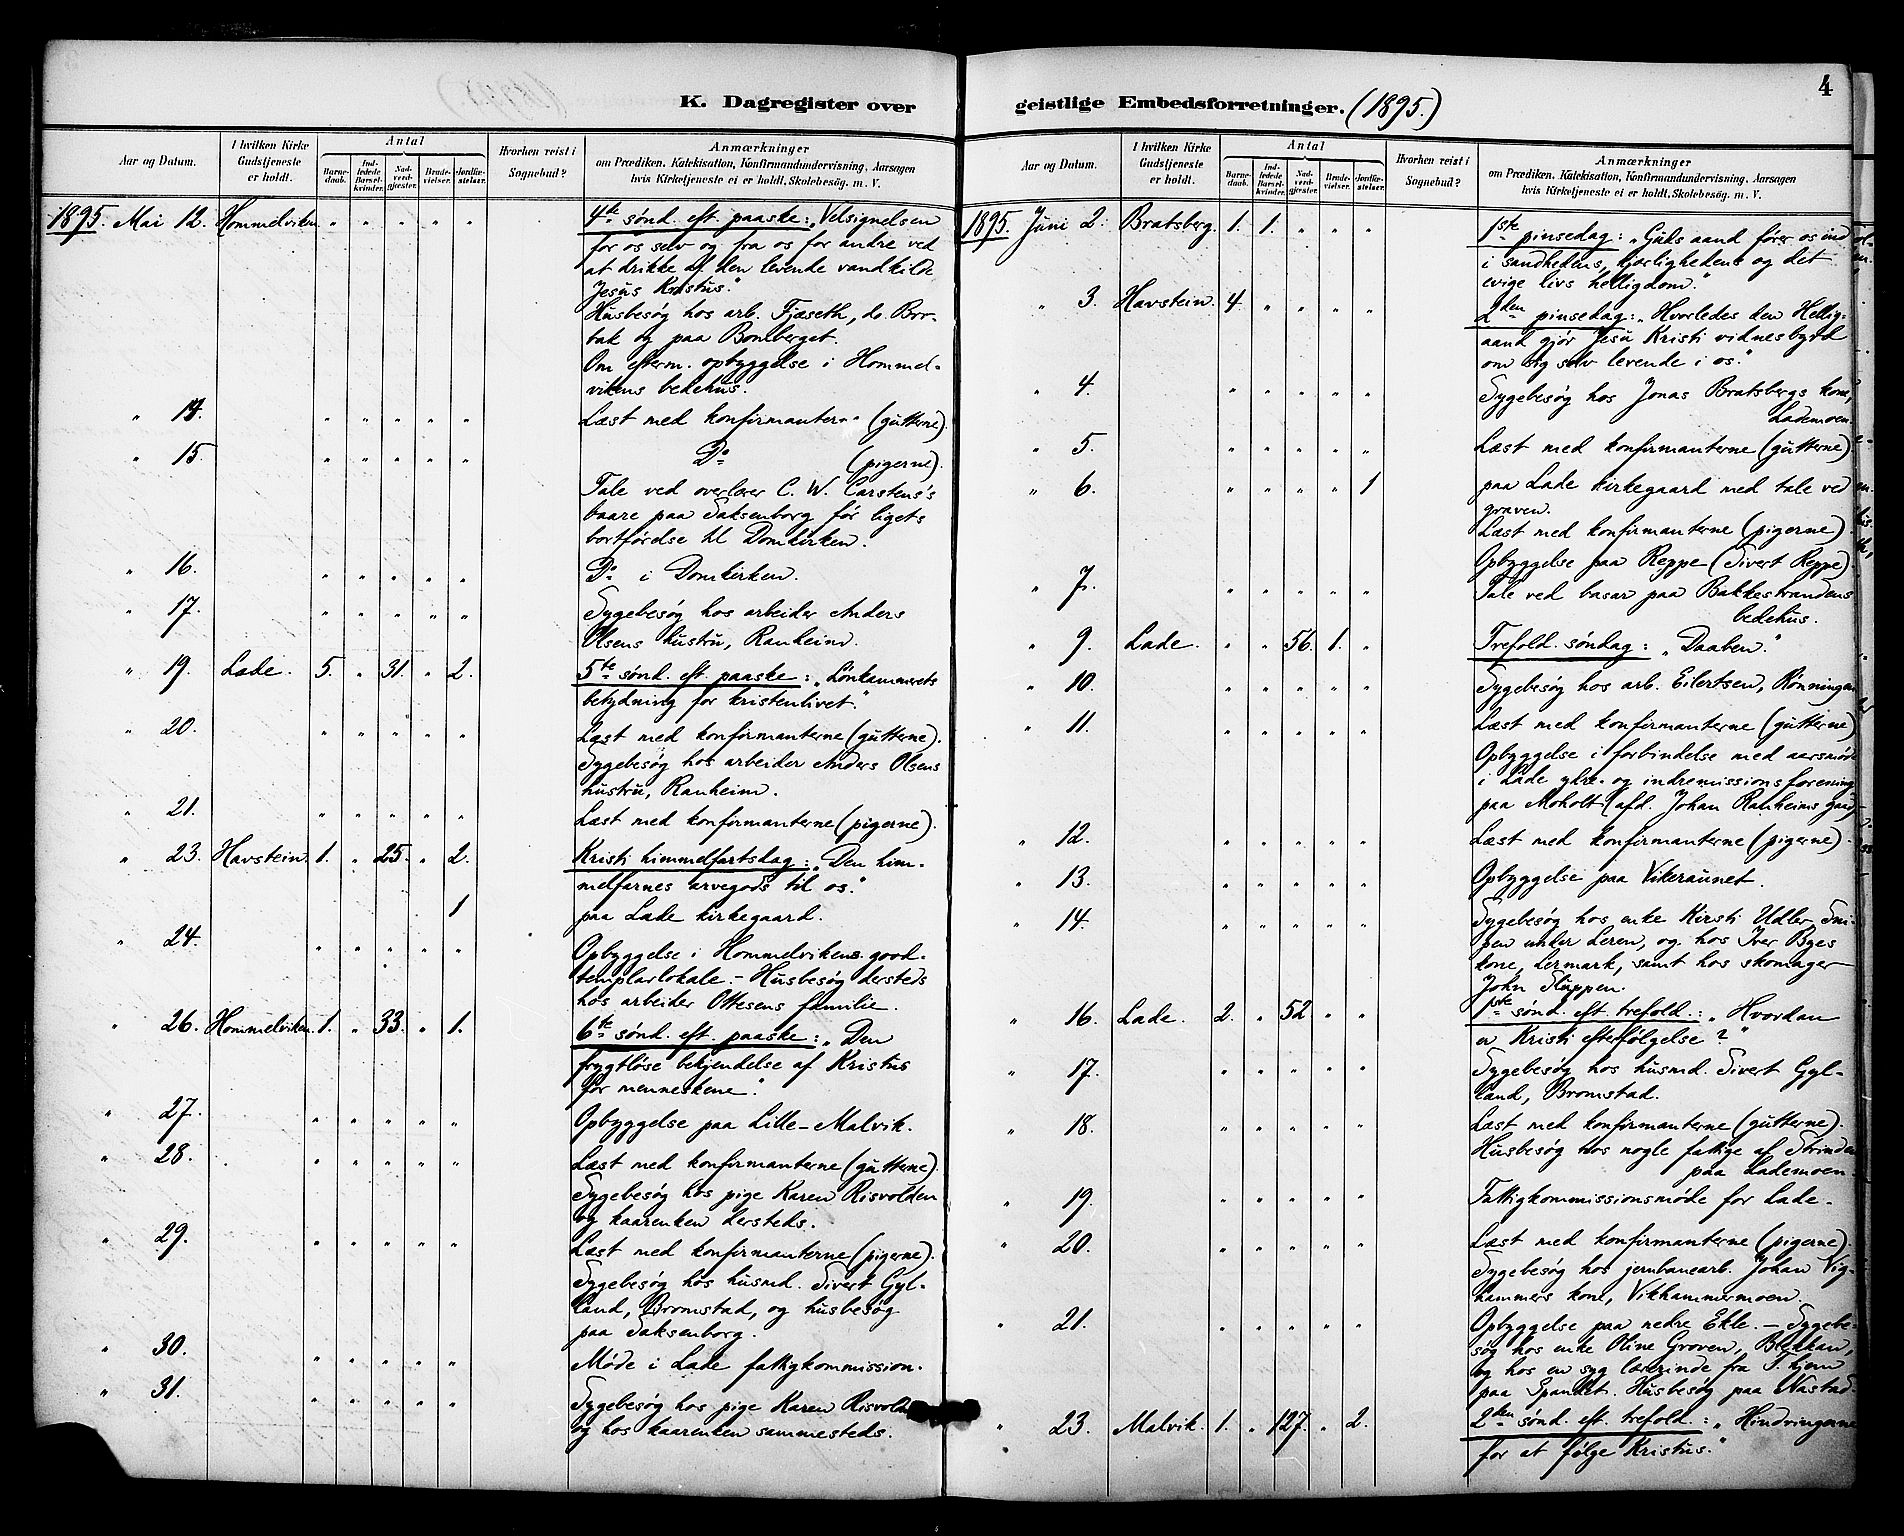 4
K. Dagregister over geistlige Embedsforretninger. (1895.)
Aar og Datum.
I hvilken Kirke Gudstjeneste er holdt.
Antal
Barnedaab.
Indledede Barselkvinder.
Nadverdgjester.
Brudevielser.
Jordfæstelser.
Hvorhen reist i Sognebud?
Anmærkninger
om Prædiken, Katekisation, Konfirmandundervisning, Aarsagen
hvis Kirketjeneste ei er holdt, Skolebesøg, m. V.
1895. Mai 12. Hommelviken " " " " " 4de sønd. eft. paaske: „Velsignelsen
for os selv og fra os for andre ved
at drikke af den levende vandkilde
Jesus Kristus."
Husbesøg hos arb. Fjæseth, do. Bor-
tak og paa Bomberget.
Om efterm. opbyggelse i Hommel-
vikens bedehus.
" 14. " " " " " Læst med konfirmanterne (gutterne).
" 15. " " " " " Do (pigerne).
Tale ved overlærer C. W. Carstens's
baare paa Saksenborg før ligets
bortførelse til Domkirken.
" 16. " " " " " Do i Domkirken.
" 17. " " " " " Sygebesøg hos arbeider Anders
Olsens hustru, Ranheim.
" 19. Lade. 5. " 31. " 2. 5te sønd. eft. paaske: „Lønkammerets
betydning for kristenlivet."
" 20. " " " " " Læst med konfirmanterne (gutterne).
Sygebesøg hos arbeider Anders Olsens
hustru, Ranheim.
" 21. " " " " " Læst med konfirmanterne (pigerne).
" 23. Havstein. 1. " 25. " 2. Kristi himmelfartsdag: „Den him-
melfarnes arvegods til os."
1 paa Lade kirkegaard.
" 24. " " " " " Opbyggelse i Hommelvikens good-
templarlokale. – Husbesøg dersteds
hos arbeider Ottesens familie.
" 26. Hommelviken. 1. " 33. " 1. 6te sønd. eft. paaske: „Den
frygtløse bekjendelse af Kristus
for menneskene."
" 27. " " " " " Opbyggelse paa Lille-Malvik.
" 28. " " " " " Læst med konfirmanterne (gutterne).
Sygebesøg hos pige Karen Risvolden
og kaarenken dersteds.
" 29. " " " " " Læst med konfirmanterne (pigerne).
Sygebesøg hos husmd. Sivert Gyl-
land, Bromstad, og husbesøg
paa Saksenborg.
" 30. " " " " " Møde i Lade fattigkommission.
" 31. " " " " " Sygebesøg hos pige Karen Risvolden
og hos kaarenken sammesteds.
Aar og Datum.
I hvilken Kirke Gudstjeneste er holdt.
Antal
Barnedaab.
Indledede Barselkvinder.
Nadverdgjester.
Brudevielser.
Jordfæstelser.
Hvorhen reist i Sognebud?
Anmærkninger
om Prædiken, Katekisation, Konfirmandundervisning, Aarsagen
hvis Kirketjeneste ei er holdt, Skolebesøg, m. V.
1895. Juni 2. Bratsberg. 1. 1. " " " 1ste pinsedag: „Guds aand fører os ind
i sandhedens, kjærlighedens og det
evige livs helligdom."
" 3. Havstein. 4. " " " " 2den pinsedag: „Hvorledes den Hellig-
aand gjør Jesu Kristi vidnesbyrd
om sig selv levende i os."
" 4. " " " " " Sygebesøg hos Jonas Bratsbergs kone,
Lademoen.
" 5. " " " " " Læst med konfirmanterne (gutterne)
" 6. " " " " 1 paa Lade kirkegaard med tale ved
graven.
Læst med konfirmanterne (pigerne).
Opbyggelse paa Reppe (Sivert Reppe).
" 7. " " " " " Tale ved basar paa Bakkestrandens
bedehus.
" 9. Lade. " " 56. 1. " Trefold. søndag: „Daaben."
" 10. " " " " " Sygebesøg hos arb. Eilertsen, Rønningen
" 11. " " " " " Læst med konfirmanterne (gutterne)
Opbyggelse i forbindelse med aarsmøde
i Lade ydre- og indremissionsforening
paa Moholt (afd. Johan Ranheims gaard)
" 12. " " " " " Læst med konfirmanterne (pigerne).
" 13. " " " " " Opbyggelse paa Vikeraunet.
" 14. " " " " " Sygebesøg hos enke Kirsti Udler, Sni-
pen under Leren, og hos Iver Byes
kone, Lermark, samt hos skomager
John Sluppen.
" 16. Lade. 2. " 52 " " 1ste sønd. eft. trefold.: „Hvordan
er Kristi efterfølgelse?"
" 17. " " " " " Sygebesøg hos husmd. Sivert Gyl-
land, Bromstad.
" 18. " " " " " Læst med konfirmanterne (gutterne).
Husbesøg hos nogle fattige af Strinden
paa Lademoen.
" 19. " " " " " Fattigkommissionsmøde for Lade.
" 20. " " " " " Læst med konfirmanterne (pigerne).
Sygebesøg hos jernbanearb. Johan Vig-
hammers kone, Vikhammermoen.
" 21. " " " " " Opbyggelse paa nedre Ekle. – Sygebe-
søg hos enke Oline Groven, Blekkan,
og hos en syg lærerinde fra
paa Spanket. Husbesøg paa
" 23. Malvik. 1. " 127. " 2. 2den sønd. eft. trefold.: „Hindringerne
" for at følge Kristus."